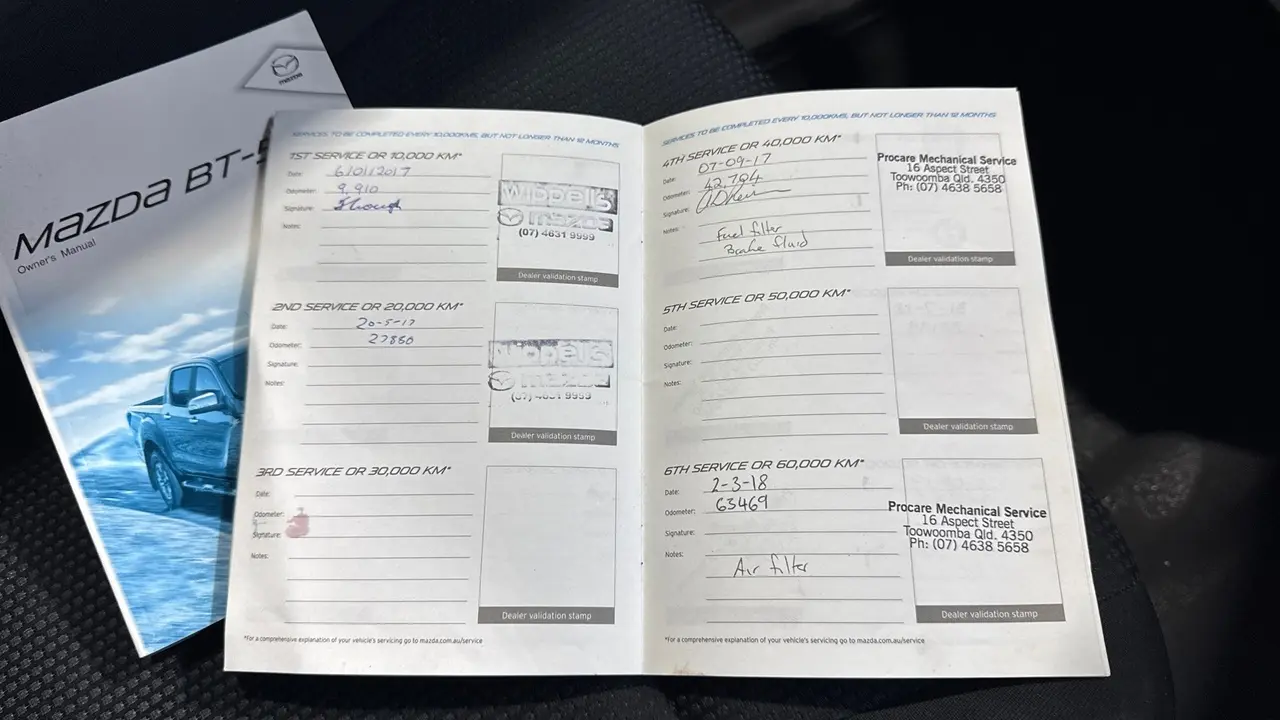 mazda
Mazda BT-5
Owner's Manual
SERVICES TO BE COMPLETED EVERY 10,000KMS, BUT NOT LONGER THAN 12 MONTHS
1ST SERVICE OR 10,000 KM*
Date: 6/01/2017
Odometer: 9,910
Signature:
Notes:
Wippells
mazda
(07) 4631 9999
Dealer validation stamp
2ND SERVICE OR 20,000 KM*
Date: 20-5-17
Odometer: 27860
Signature:
Notes:
Wippells
mazda
(07) 4631 9999
Dealer validation stamp
3RD SERVICE OR 30,000 KM*
Date:
Odometer:
Signature:
Notes:
Dealer validation stamp
*For a comprehensive explanation of your vehicle's servicing go to mazda.com.au/service
SERVICES TO BE COMPLETED EVERY 10,000KMS, BUT NOT LONGER THAN 12 MONTHS
4TH SERVICE OR 40,000 KM*
Date: 07-09-17
Odometer: 42,794
Signature:
Notes: Fuel filter
Brake fluid
Procare Mechanical Service
16 Aspect Street
Toowoomba Qld. 4350
Ph: (07) 4638 5658
Dealer validation stamp
5TH SERVICE OR 50,000 KM*
Date:
Odometer:
Signature:
Notes:
Dealer validation stamp
6TH SERVICE OR 60,000 KM*
Date: 2-3-18
Odometer: 63469
Signature:
Notes:
Air filter
Procare Mechanical Service
16 Aspect Street
Toowoomba Qld. 4350
Ph: (07) 4638 5658
Dealer validation stamp
*For a comprehensive explanation of your vehicle's servicing go to mazda.com.au/service